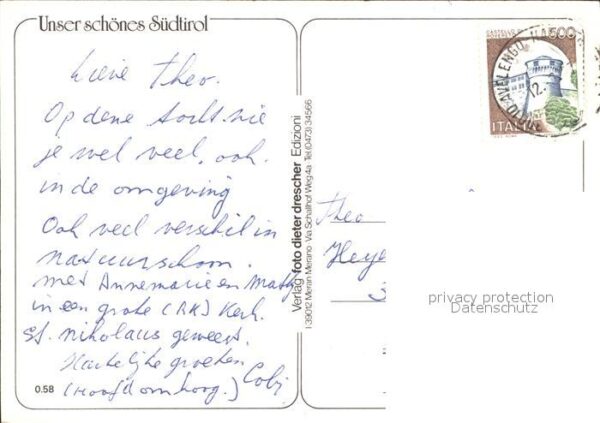 Unser schönes Südtirol
Lieve Theo.
Op deze tocht zie
je wel veel, ook
in de omgeving
Ook veel verschil in
natuurschoon.
met Annemarie en Matty
in een grote (RK) Kerk.
St. Nikolaus geweest.
Hartelijke groeten
(Hoofd omhoog.) Coby
0.58
Verlag foto dieter drescher Edizioni
I-39012 Meran Merano · Via Schaffer Weg 4a · Tel (0473) 34566
500
ITALIA
AVELENGO
12.
Theo
Heye
3
privacy protection
Datenschutz